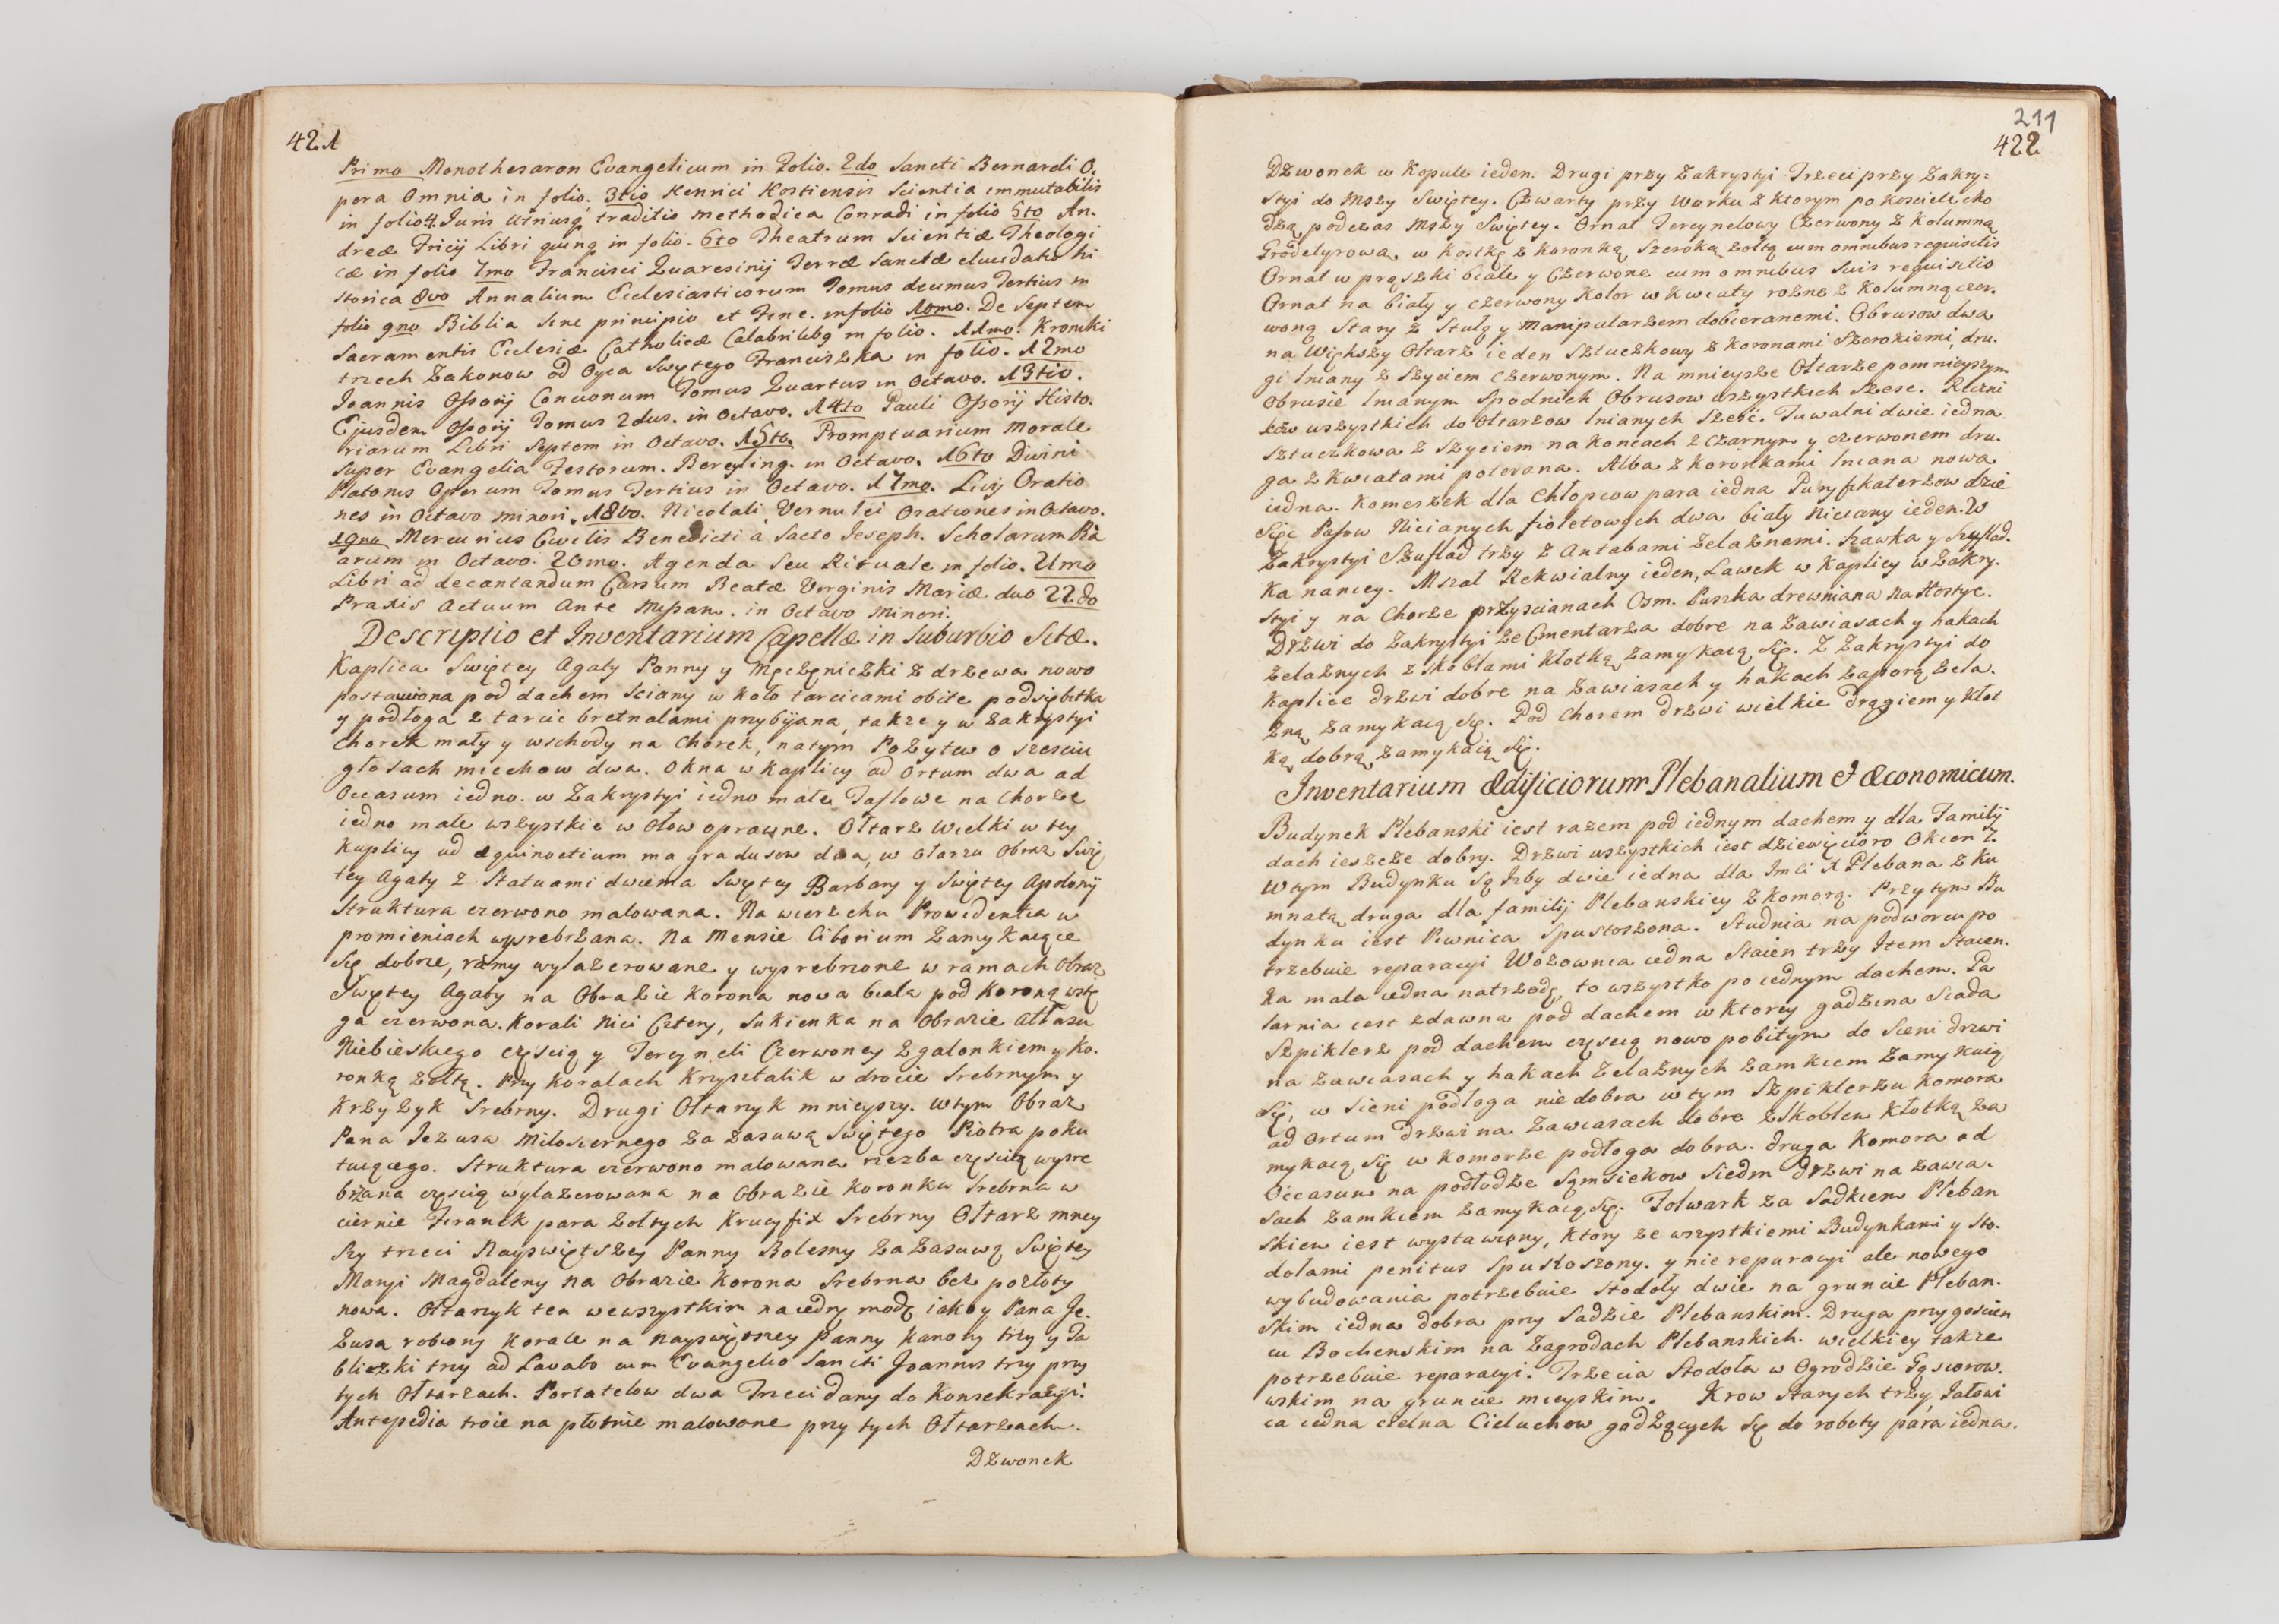 421
Primo Monothesaron Evangelicum in Folio. 2do Sancti Bernardi O,
pera Omnia in folio. 3tio Henrici Hostiensis Scientia immutabilis
in folio. 4. Juris Utriusq traditio methodica Conradi in folio 5to An,
dreæ Fricij Libri quinq in folio. 6to Theatrum Scientiæ Theologi
cæ in folio 7mo Francisci Quaresinij Terræ Sanctæ elucidatio hi
storica 8vo Annalium Ecclesiasticorum Tomus decimus Tertius in
folio 9no Biblia sine principio et Fine. in folio 10mo. De Septem
Sacramentis Ecclesiæ Catholicæ Calabri libg in folio. 11mo. Kroniki
trzech Zakonow od Oyca Swiętego Franciszka in folio. 12mo
Joannis Ossorij Concionum Tomus Quartus in Octavo. 13tio.
Ejusdem Ossorij Tomus 2dus. in Octavo. 14to Pauli Ossorij Histo,
riarum Libri Septem in Octavo. 15to. Promptuarium Morale
super Evangelia Festorum. Bereyling. in Octavo. 16to Divini
Platonis Operum Tomus Tertius in Octavo. 17mo. Livij Oratio
nes in Octavo minori. 18vo. Nicolai Vernulei Orationes in Octavo.
19no Mercurius Civilis Benedicti à Sacto Joseph. Scholarum Pia
arum in Octavo. 20mo. Agenda Seu Rituale in folio. 21mo
Libri ad decantandum Cursum Beatæ Virginis Mariæ duo 22do
Praxis Actuum Ante Missam. in Octavo Minori.
Descriptio et Inventarium Capellæ in Suburbio Sitæ.
Kaplica Swiętey Agaty Panny y Męczęniczki z drzewa nowo
postawiona pod dachem sciany w koło tarcicami obite podsiębitka
y podłoga z tarcic bretnalami przybijana, także y w zakrystyi
Chorek mały y wschody na Chorek, natym Pozytew o szesciu
głosach miechow dwa. Okna w Kaplicy ad Ortum dwa ad
Occasum iedno. w Zakrystyi iedno małe Taflowe na Chorze
iedno małe wszystkie w Ołow oprawne. Ołtarz Wielki w tey
Kaplicy ad æquinoctium ma gradusow dwa, w Ołarzu Obraz Swię
tey Agaty z Statuami dwiema Swiętey Barbary y Swiętey Apolonij
Struktura czerwono malowana. Na wierzchu Prowidentia w
promieniach wysrebrzana. Na Mensie Ciborium zamykaiące
Się dobrze, ramy wylazerowane y wysrebrzone w ramach Obraz
Swiętey Agaty na Obrazie Korona nowa biała pod Koroną wstę
ga czerwona. Korali Nici Cztery, Sukienka na Obrazie Atłasu
Niebieskiego częscią y Tercyneli Czerwoney z galonkiem y ko,
ronką żołtą. Przy Koralach Krzysztalik w drocie Srebrnym y
Krzyzyk Srebrny. Drugi Ołtarzyk mnieyszy. Wtym Obraz
Pana Jezusa Miłosiernego Za Zasuwą Swiętego Piotra poku
tuiącego. Struktura czerwono malowana rzezba częscią wysre
brzana częscią wylazerowana na Obrazie Koronka Srebrna w
ciernie Firanek para żołtych Krucyfix Srebrny Ołtarz mniey
szy trzeci Nayswiętszey Panny Bolesny za Zasuwą Swiętey
Maryi Magdaleny na Obrazie Korona Srebrna bez pozłoty
nowa. Ołtarzyk ten we wszystkim na iednę modę iako y Pana Je,
zusa robiony Korale na Nayswiętszey Panny Kanony trzy y Ta
bliczki trzy ad Lavabo cum Evangelio Sancti Joannis trzy przy
tych Ołtarzach. Portatelow dwa Trzeci dany do Konsekracyi.
Antepedia troie na płotnie malowane przy tych Ołtarzach.
Dzwonek
211
422
Dzwonek w Kopule ieden. Drugi przy Zakrystyi Trzeci przy Zakry=
styi do Mszy Swiętey. Czwarty przy Worku z ktorym po kosciele cho
dzą podczas Mszy Swiętey. Ornat Tercynelowy Czerwony z Kolumną
Grodetyrową, w Kostkę z Koronką Szeroką zołtą cum omnibus requisitis
Ornat w prąszki białe y Czerwone cum omnibus Suis requisitio
Ornat na biały y czerwony Kolor w kwiaty rożne z Kolumną czer,
woną Stary z Stułą y Manipularzem dobieranemi. Obrusow dwa
na Większy Ołtarz ieden Sztuczkowy z Koronami Szerokiemi, dru,
gi lniany z Szyciem Czerwonym. Na mnieysze Ołtarze pomnieyszym
Obrusie lnianym Spodnich Obrusow wszystkich Szesc. Ręczni
kow wszystkich do Ołtarzow lnianych Szesć. Tuwalni dwie iedna
Sztuczkowa z Szyciem na Koncach z Czarnym y czerwonem dru,
ga z Kwiatami poterana. Alba z Koronkami lniana nowa
iedna. Komeszek dla Chłopcow para iedna Puryfikaterzow dzie
sięc Pasow Nicianych fioletowych dwa biały Niciany ieden. W
Zakrystyi Szuflad trzy z Antabami żelaznemi. Szawka y Szuflad,
ka nancey. Mszał Rekwialny ieden, Ławek w Kaplicy w Zakry,
styi y na Chorze przyscianach Osm. Puszka drewniana na Hostye.
Drzwi do Zakrystyi ze Cmentarza dobre na Zawiasach y hakach
żelaznych z skoblami Kłotką zamykaią Się. Z Zakrystyi do
Kaplice drzwi dobre na Zawiasach y hakach zaporą żela,
zną zamykaią się. Pod Chorem drzwi wielkie drągiem y Kłot
ką dobrą zamykaią Się.
Inventarium Ædificiorum Plebanalium et Œconomicum.
Budynek Plebanski iest razem pod iednym dachem y dla Familij
dach ieszcze dobry. Drzwi wszystkich iest dziewięcioro Okien 7.
W tym Budynku Są Izby dwie iedna dla Imci X Plebana z ku
mnatą druga dla familij Plebanskiey z komorą. Przy tym Bu
dynku iest Piwnica Spustoszona. Studnia na podworcu po
trzebuie reparacyi Wozownia iedna Staien trzy Item Staien,
ka mała iedna natrzodę, to wszystko po iednym dachem. Pa
sarnia iest zdawna pod dachem w ktorey gadzina Siada
Szpiklerz pod dachem częscią nowo pobitym do Sieni drzwi
na Zawiasach y hakach Żelaznych zamkiem zamykaią
Się, w Sieni podłoga niedobra w tym Szpiklerzu Komora
ad Ortum drzwi na Zawiasach dobre z Skoblem Kłotką za
mykaią Się w Komorze podłoga dobra. druga Komora ad
Occasum na podłodze Sąmsiekow Siedm drzwi na Zawia,
sach zamkiem zamykaią się. Folwark za Sadkiem Pleban
skiem iest wystawiony, ktory ze wszystkiemi Budynkami y Sto,
dołami penitus Spustoszony. y nie reparacyi ale nowego
wybudowania potrzebuie Stodoły dwie na gruncie Pleban,
skim iedna dobra przy Sadzie Plebanskim. Druga przy goscien
cu Bochenskim na Zagrodach Plebanskich. wielkiey także
potrzebuie reparacyi. Trzecia Stodoła w Ogrodzie Gąsiorow,
wskim na gruncie mieyskim. Krow starych trzy Jałowi
ca iedna cielna Cieluchow godzących Się do roboty para iedna.